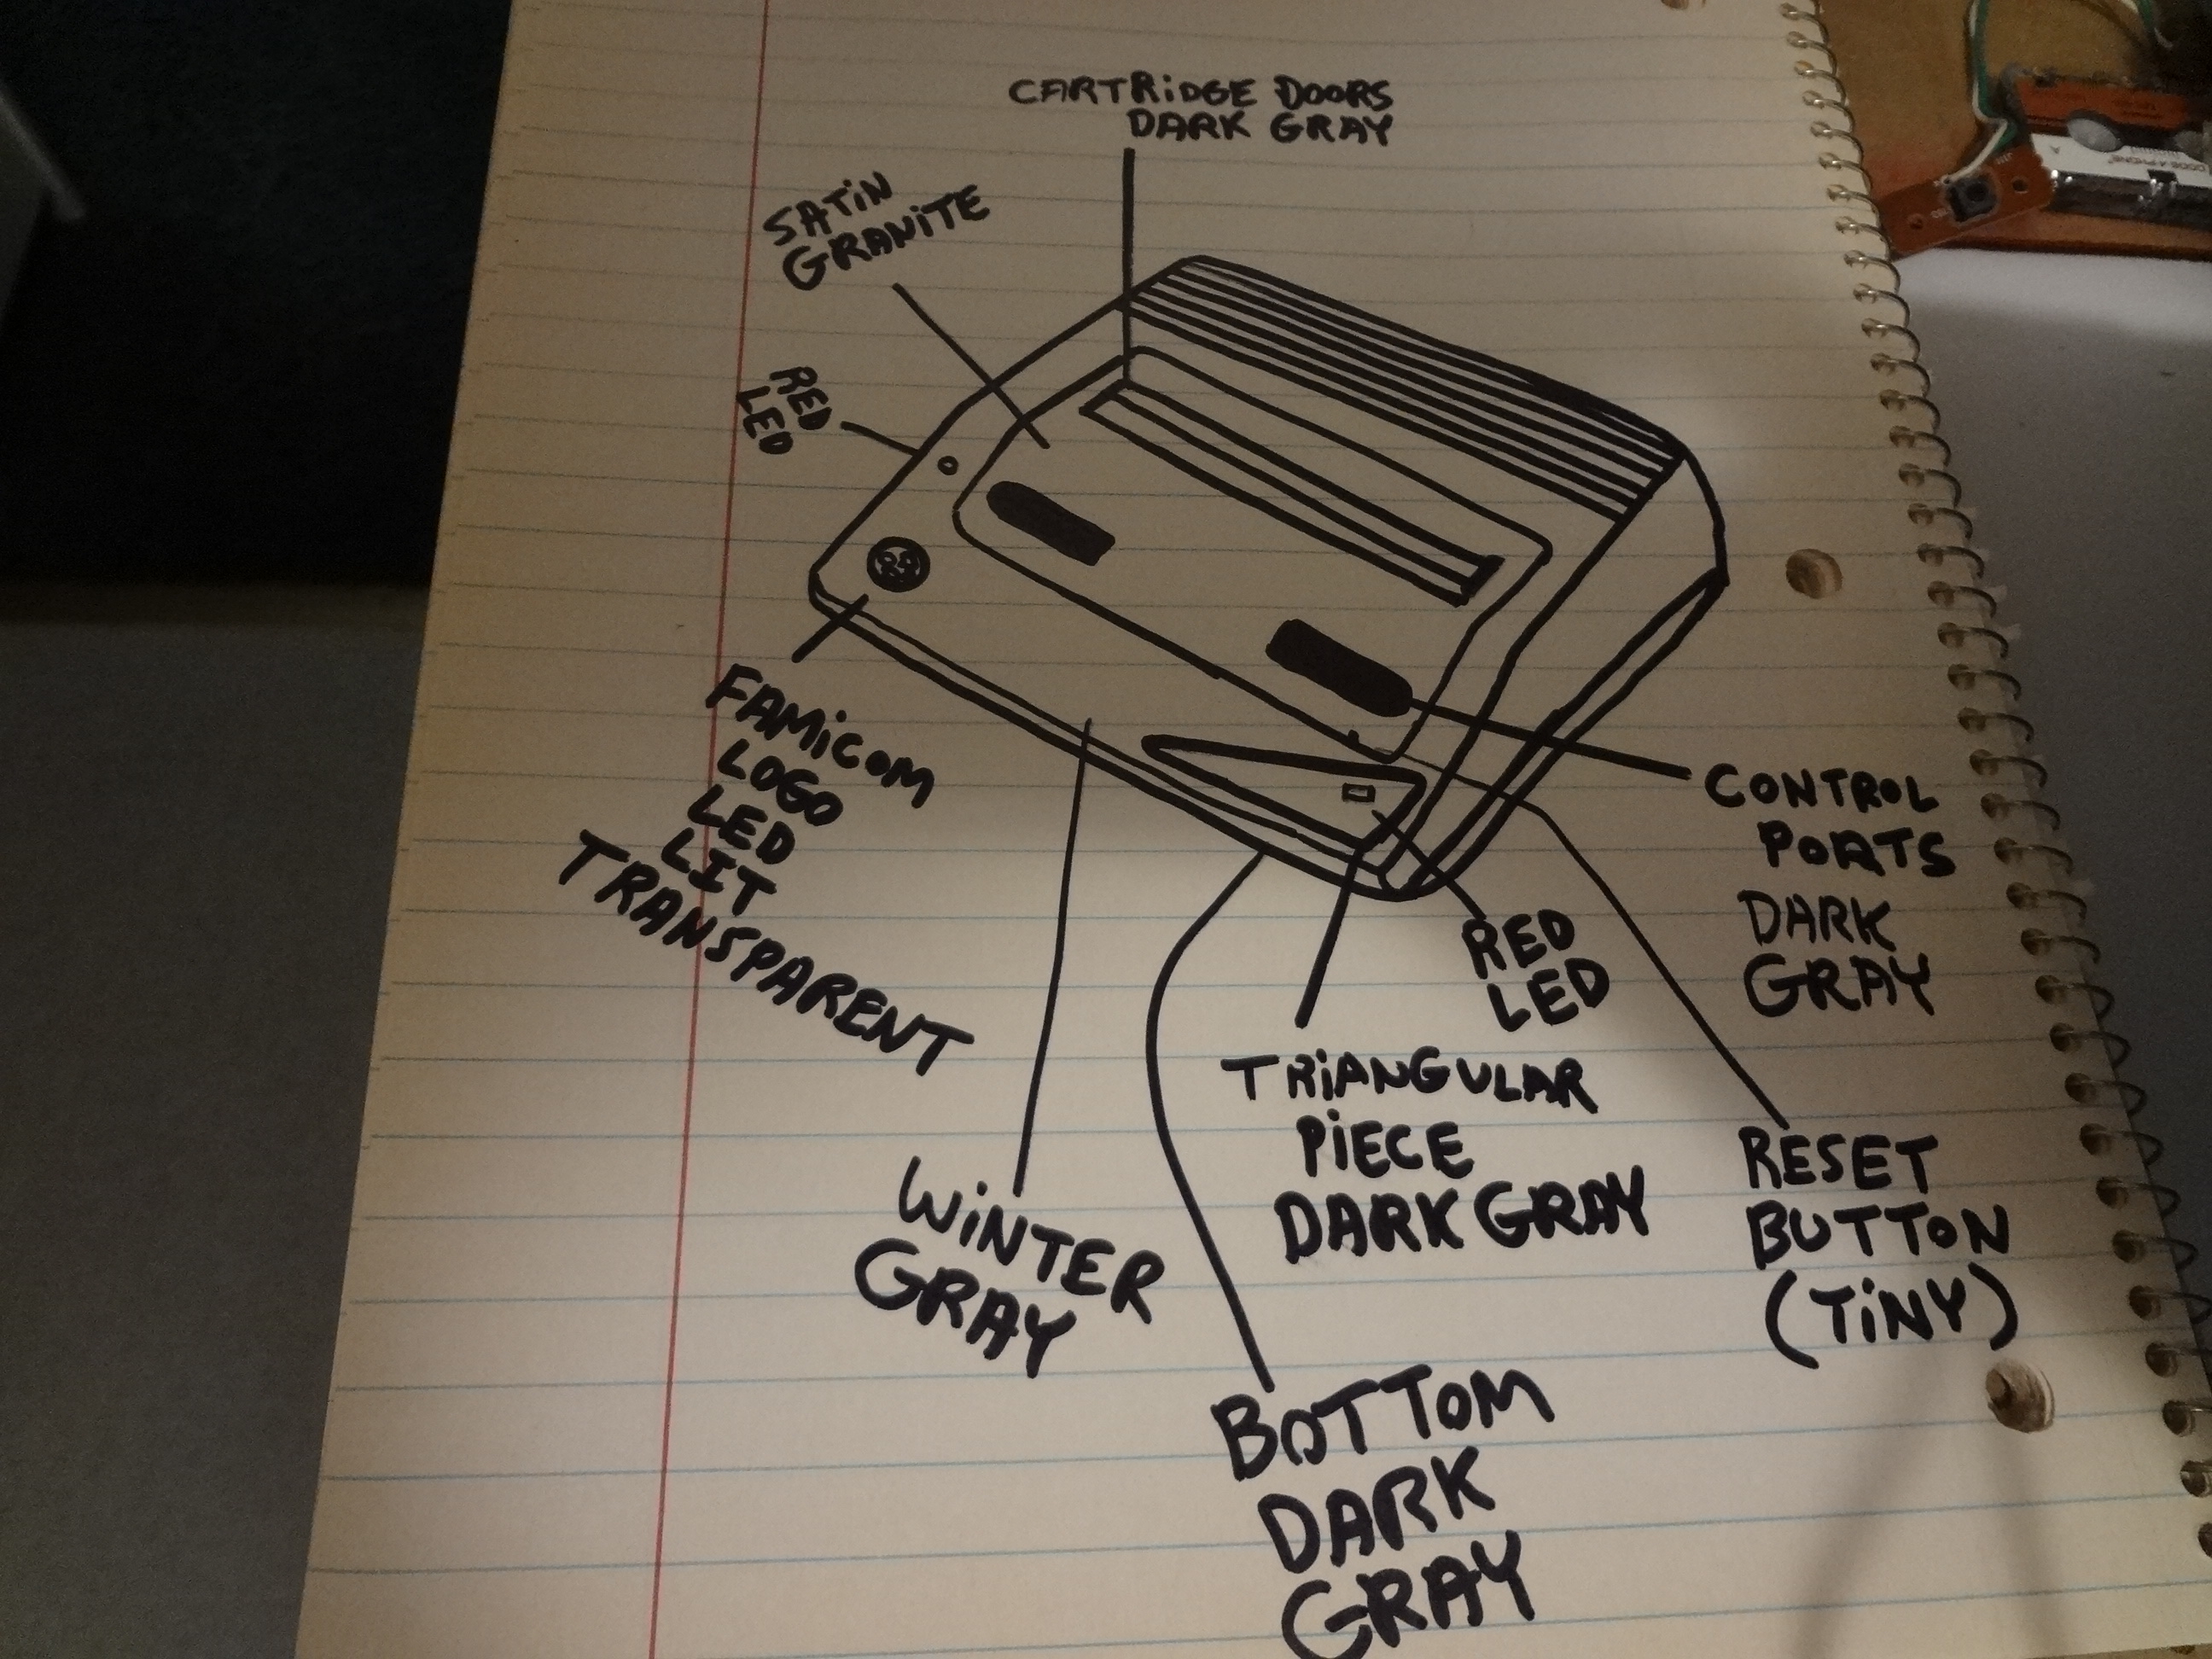 CARTRiDGE DOORS
DARK GRAY
SATiN
GRANiTE
RED
LED
FAMiCOM
LOGO
LED
LIT
TRANSPARENT
CONTROL
PORTS
DARK
GRAY
RED
LED
TRiANGULAR
PiECE
DARK GRAY
RESET
BUTTON
(TiNY)
WiNTER
GRAY
BOTTOM
DARK
GRAY